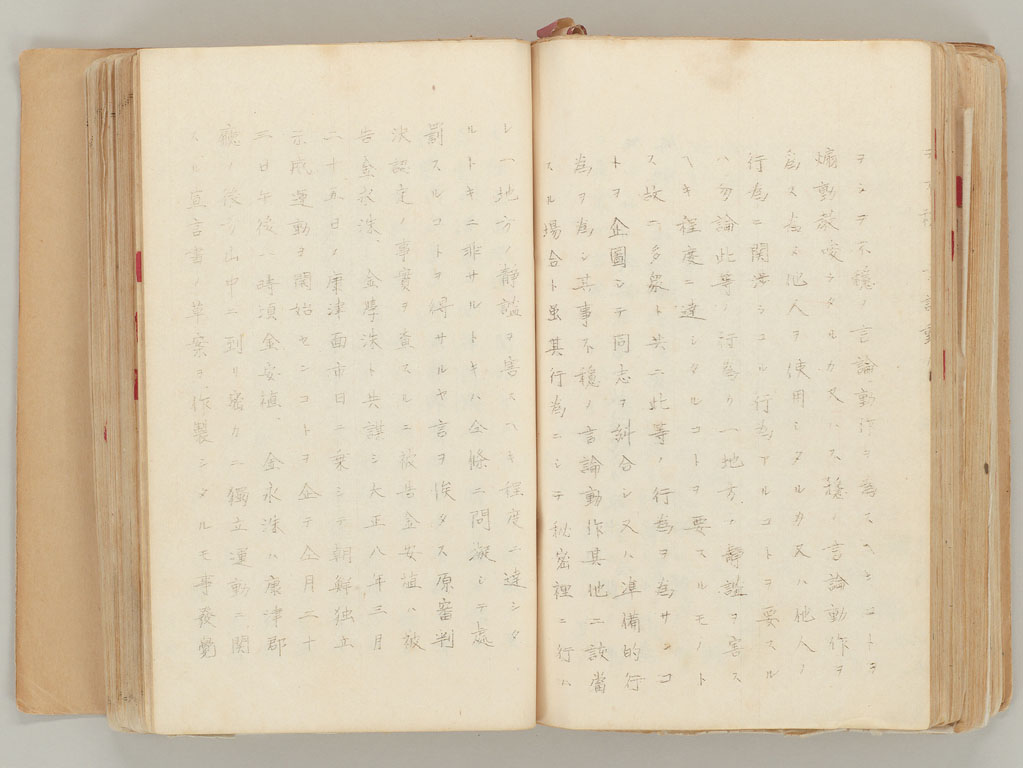 ヲシテ不穏ノ言論動作ヲ為
煽動教唆シタルカ又ハ不穏ノ言論動作ヲ
為ス為シ他人ヲ使用シタルカ又ハ他人ノ
行為ニ関渉シタル行為アルコトヲ要スル
ハ勿論此等ノ行為カ一地方ノ靜謐ヲ害ス
ヘキ程度ニ達シタルコトヲ要スルモノト
ス故ニ多衆ト共ニ此等ノ行為ヲ為サンコ
トヲ企圖シテ同志ヲ糾合シ又ハ準備的行
為ヲ為シ其事不穏ノ言論動作其他ニ該當
スル場合ト虽其行為ニシテ秘密裡ニ行ハ
レ一地方ノ靜謐ヲ害スヘキ程度ニ達シタ
ルトキニ非サルトキハ仝條ニ問擬シテ處
罰スルコトヲ得サルヤ言ヲ俟タス原審判
決認定ノ事實ヲ査スルニ被告金安植ハ被
告金永洙、金學洙ト共謀シ大正八年三月
二十五日ノ康津面市日ニ乗シテ朝鮮独立
示威運動ヲ開始センコトヲ企テ仝月二十
二日午後八時頃金安植、金永洙ハ康津郡
廳ノ後方山中ニ到リ密カニ獨立運動ニ関
スル宣言書ノ草案ヲ作製シタルモ事發覺